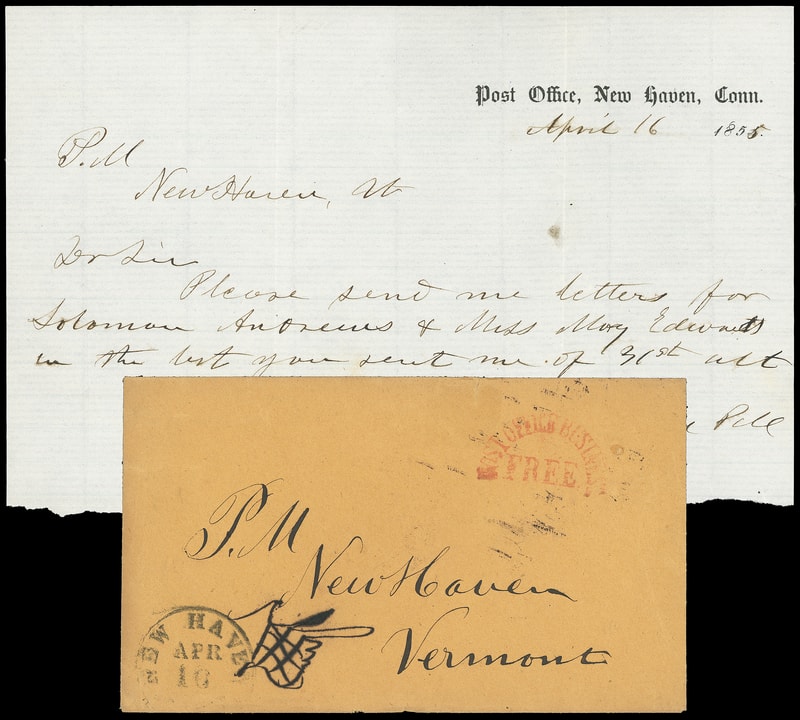 Post Office, New Haven, Conn.
April 16 1855.
P.M
New Haven, Vt
Dr Sir
Please send me letters for
Solomon Andrews & Miss Mary Edwards
in the lot you sent me of 31st ult
POST OFFICE BUSINESS
FREE
P.M
New Haven
Vermont
NEW HAVE
APR
16